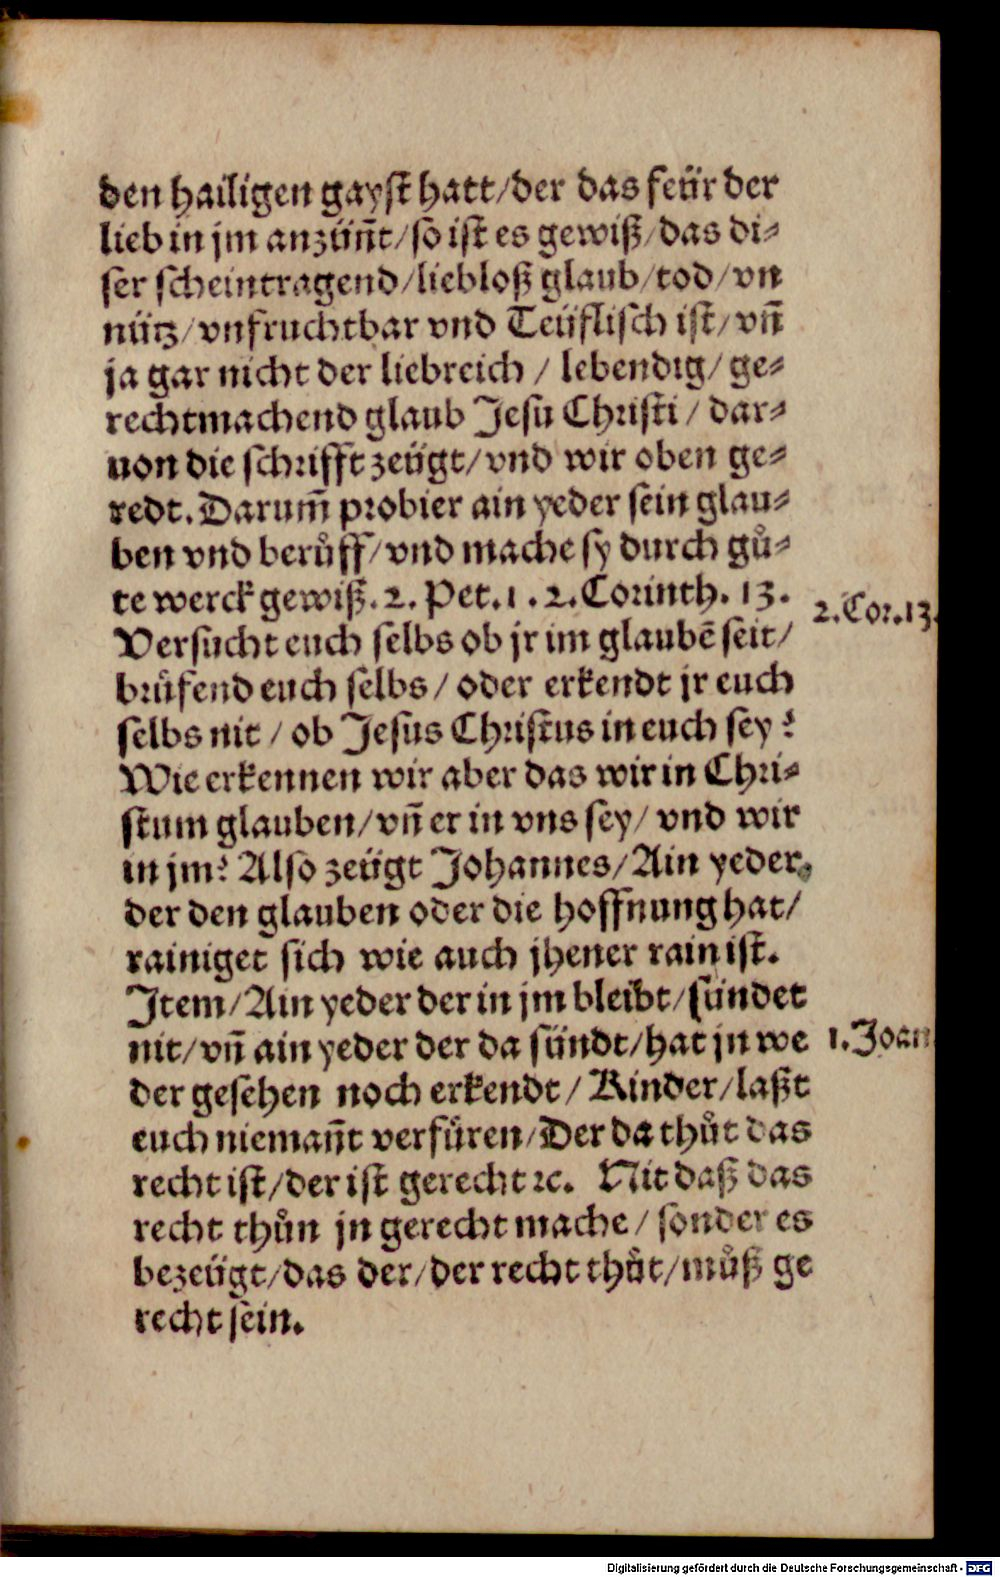 den hailigen gayst hatt/der das feür der
lieb in jm anzünñt/so ist es gewiß/das di⸗
ser scheintragend/liebloß glaub/tod/vn
nütz/vnfruchtbar vnd Teüflisch ist/vñ
ja gar nicht der liebreich / lebendig/ ge⸗
rechtmachend glaub Jesu Christi / dar⸗
uon die schrifft zeügt/vnd wir oben ge⸗
redt. Darum̃ probier ain yeder sein glau⸗
ben vnd berůff/vnd mache sy durch gů⸗
te werck gewiß. 2. Pet. 1 . 2. Corinth. 13.
2. Cor. 13.
Versucht euch selbs ob jr im glaubẽ seit/
brüfend euch selbs / oder erkendt jr euch
selbs nit / ob Jesus Christus in euch sey?
Wie erkennen wir aber das wir in Chri⸗
stum glauben/vñ er in vns sey/ vnd wir
in jm? Also zeügt Johannes/Ain yeder,
der den glauben oder die hoffnung hat/
rainiget sich wie auch jhener rain ist.
Item/Ain yeder der in jm bleibt/sündet
nit/vñ ain yeder der da sündt/hat jn we
1. Joan
der gesehen noch erkendt / Kinder/laßt
euch niemañt verfüren/Der da thůt das
recht ist/der ist gerecht ꝛc. Nit daß das
recht thůn jn gerecht mache / sonder es
bezeügt/das der/der recht thůt/můß ge
recht sein.
Digitalisierung gefördert durch die Deutsche Forschungsgemeinschaft - DFG